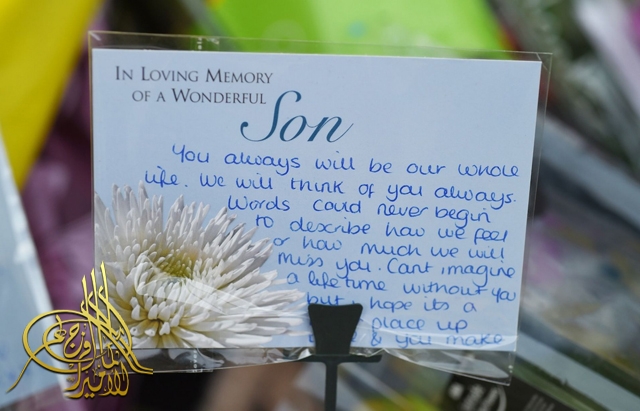 IN LOVING MEMORY
OF A WONDERFUL
Son
You always will be our whole
life. We will think of you always.
Words could never begin
to describe how we feel
or how much we will
miss you. Cant imagine
a lifetime without you
but hope its a
place up
& you make